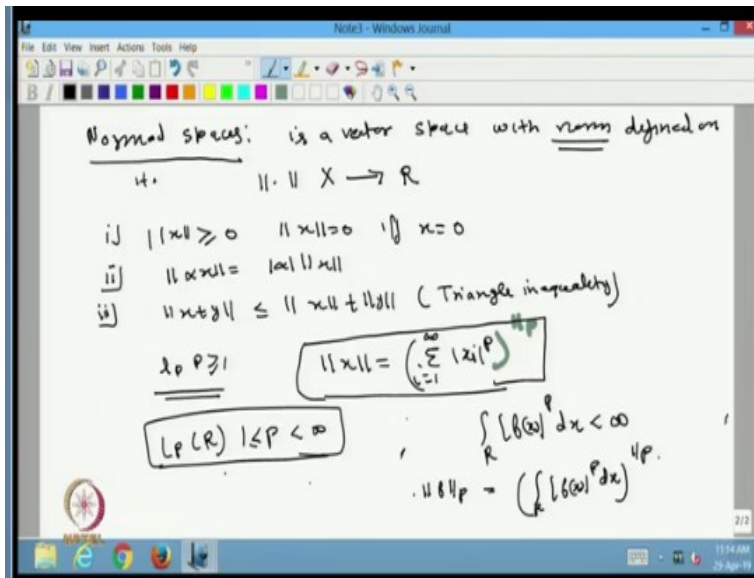 Note3 - Windows Journal
File Edit View Insert Actions Tools Help
Normed spaces: is a vector space with norm defined on
it. ||·|| X → R
i) ||x|| ≥ 0 ||x||=0 if x=0
ii) ||αx|| = |α| ||x||
iii) ||x+y|| ≤ ||x|| + ||y|| (Triangle inequality)
l_p p≥1 ||x|| = (∑_{i=1}^{∞} |x_i|^p)^{1/p}
L_p (R) 1≤p<∞ ∫_R |f(x)|^p dx < ∞
||f||_p = (∫_R |f(x)|^p dx)^{1/p}.
NPTEL
2/2
11:14 AM
29-Apr-19